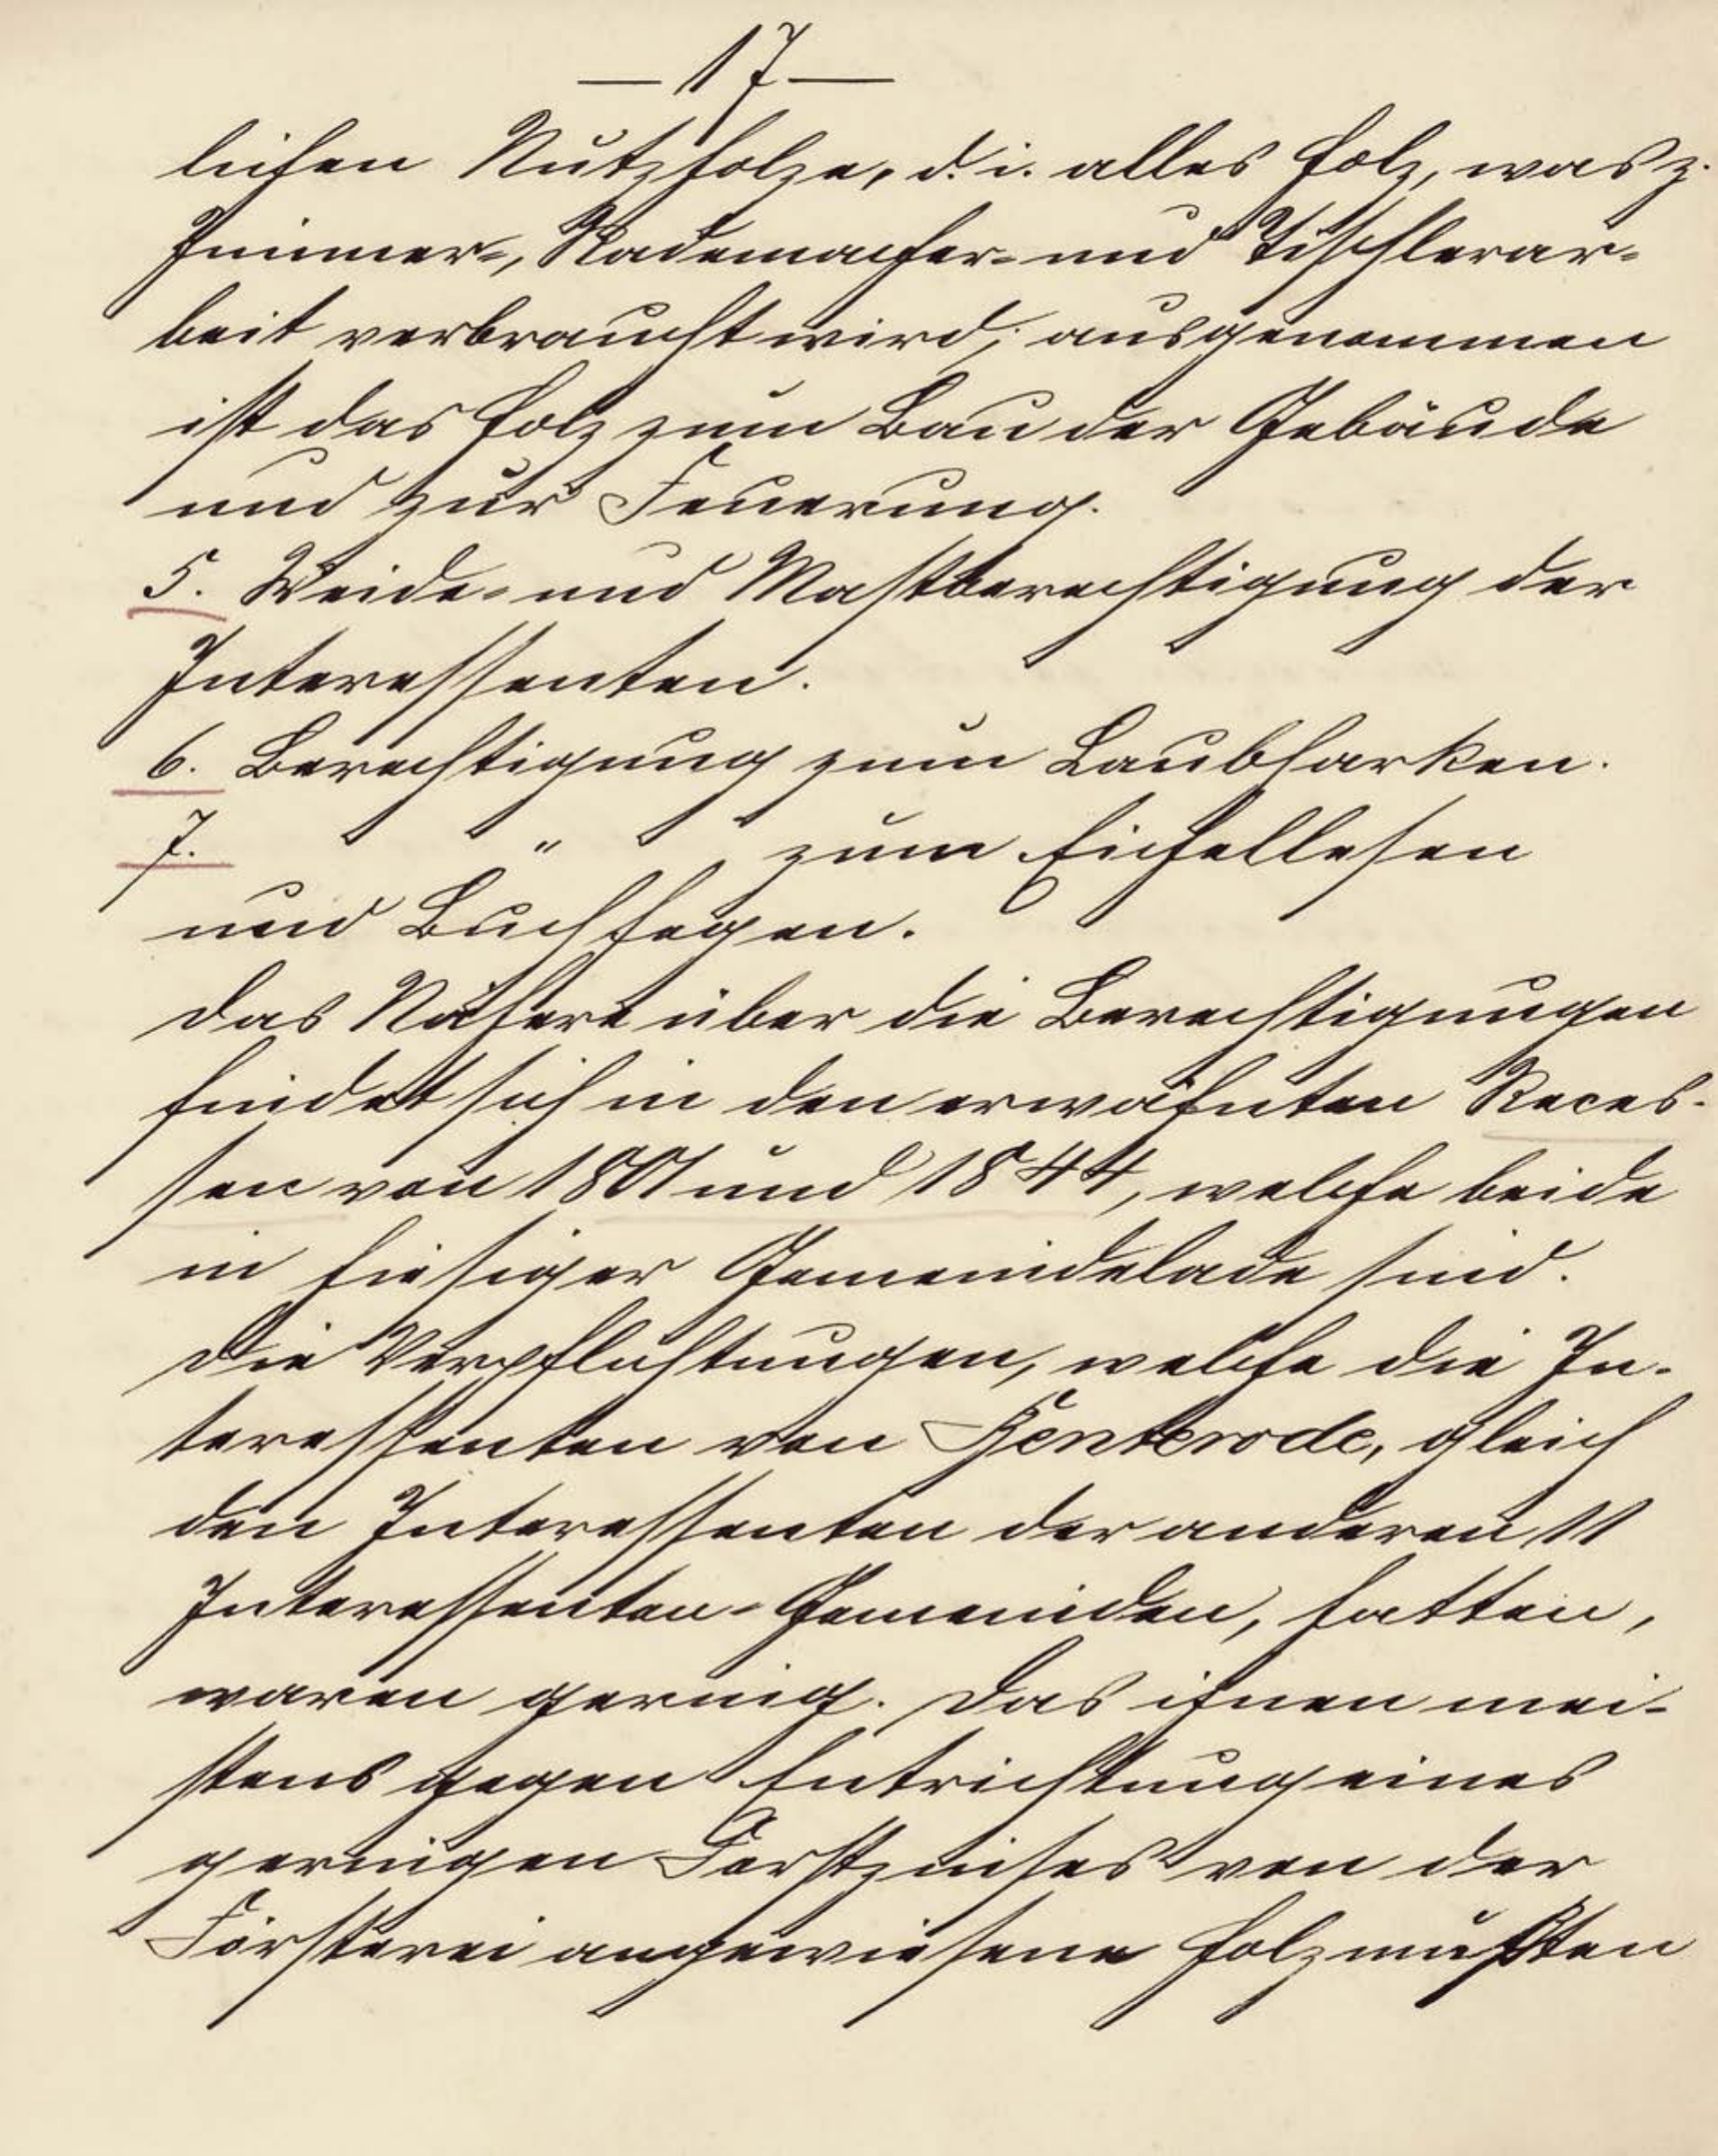 — 17 —
lichen Nutzholze, d. i. alles Holz, was z.
Zimmer-, Rademacher- und Tischlerar-
beit verbraucht wird; ausgenommen
ist das Holz zum Bau der Gebäude
und zur Feuerung.
5. Weide- und Mastberechtigung der
Interessenten.
6. Berechtigung zum Laubharken.
7. " zum Eichellesen
und Buchfegen.
Das Nähere über die Berechtigungen
findet sich in den erwähnten Reces-
sen von 1801 und 1844, welche beide
in hiesiger Gemeindelade sind.
Die Verpflichtungen, welche die In-
teressenten von Henterode, gleich
den Interessenten der anderen 11
Interessenten-Gemeinden, hatten,
waren gering. Das ihnen mei-
stens gegen Entrichtung eines
geringen Forstzinses von der
Försterei angewiesene Holz mußten